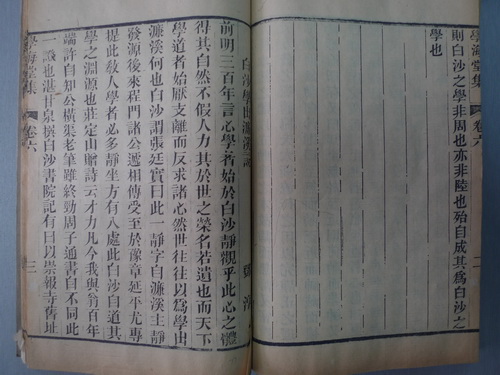 學海堂集
卷六
二
則白沙之學非周也亦非陸也殆自成其為白沙之
學也
白沙學出濂溪說
前明三百年言心學者始於白沙靜觀乎此心之體
得其自然不假人力其於世之榮名若遺也而天下
學道者始厭支離而反求諸心然世往往以為學由
濂溪何也白沙謂張廷實曰此一靜字自濂溪主靜
發源後來程門諸公遞相傳受至於豫章延平尤專
提此敎人學者必多靜坐方有入處此白沙自道其
學之淵源也莊定山贈詩云才力凡今我與翁百年
端許自知公橫渠老筆雖終勁周子通書自不同此
一證也湛甘泉撰白沙書院記有曰以崇報寺舊址
學海堂集
卷六
三